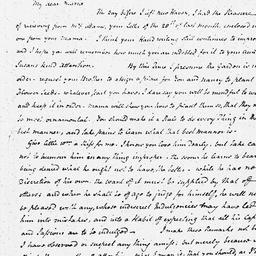 My dear Maria
The day before I left New Haven, I had the pleasure
of receiving from Mr. Adam, your letter of the 20th of last month enclosed in
one from your Mama. I think your Hand writing still continues to improve
and I hope you will remember how much you are indebted for it to your Aunt
Susan's kind attention. By this time I presume the Garden is in
order. request your Mother to assign a place for you and Nancy to plant
flower seeds. whatever part you have, I dare say you will be mindful to weed
and keep it in order. Mama will show you how to plant them so, that they may
be most ornamental. You should make it a Rule to do every thing in the
best manner, and take pains to learn what that best manner is.
Give little Wm. a kiss for me. I know you love him dearly, but take care
not to humour him in any thing improper. The sooner he learns to bear
being denied what he ought not to have, the better. while he has no
Discretion of his own, the want of it must be supplied by that of
others. and when he shall be of age to judge for himself, he will not be
so pleased with any, whose indiscreet Indulgences may have led
him into mistakes, and into a Habit of expecting that all his Cap
and Passions are to be indulged. I make these Remarks not be
I have observed or suspect any thing amiss, but merely because